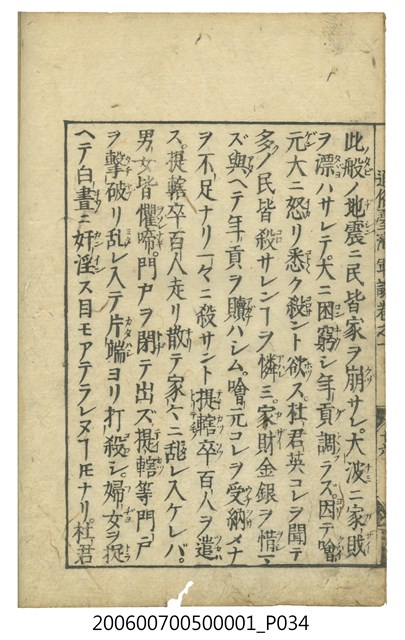 此般ノ地震ニ民皆家ヲ崩サレ大波ニ家財
ヲ漂ハサレテ大ニ困窮シ年貢調ラズ因テ噲
元大ニ怒リ悉ク殺ント欲ス杜君英コレヲ聞テ
多ノ民皆殺サレンヿヲ憐ミ家財金銀ヲ惜マ
ズ與ヘテ年貢ヲ贖ハシム噲元コレヲ受納メナ
ヲ不足ナリ一々ニ殺サント提轄卒百人ヲ遣
ス提轄卒百人走リ散テ家々ニ乱レ入ケレバ
男女皆懼啼門戸ヲ閉テ出ズ提轄等門戸
ヲ擊破リ乱レ入テ片端ヨリ打殺シ婦女ヲ捉
ヘテ白晝ニ奸淫ス目モアテラレヌヿ𪜈ナリ杜君
200600700500001_P034